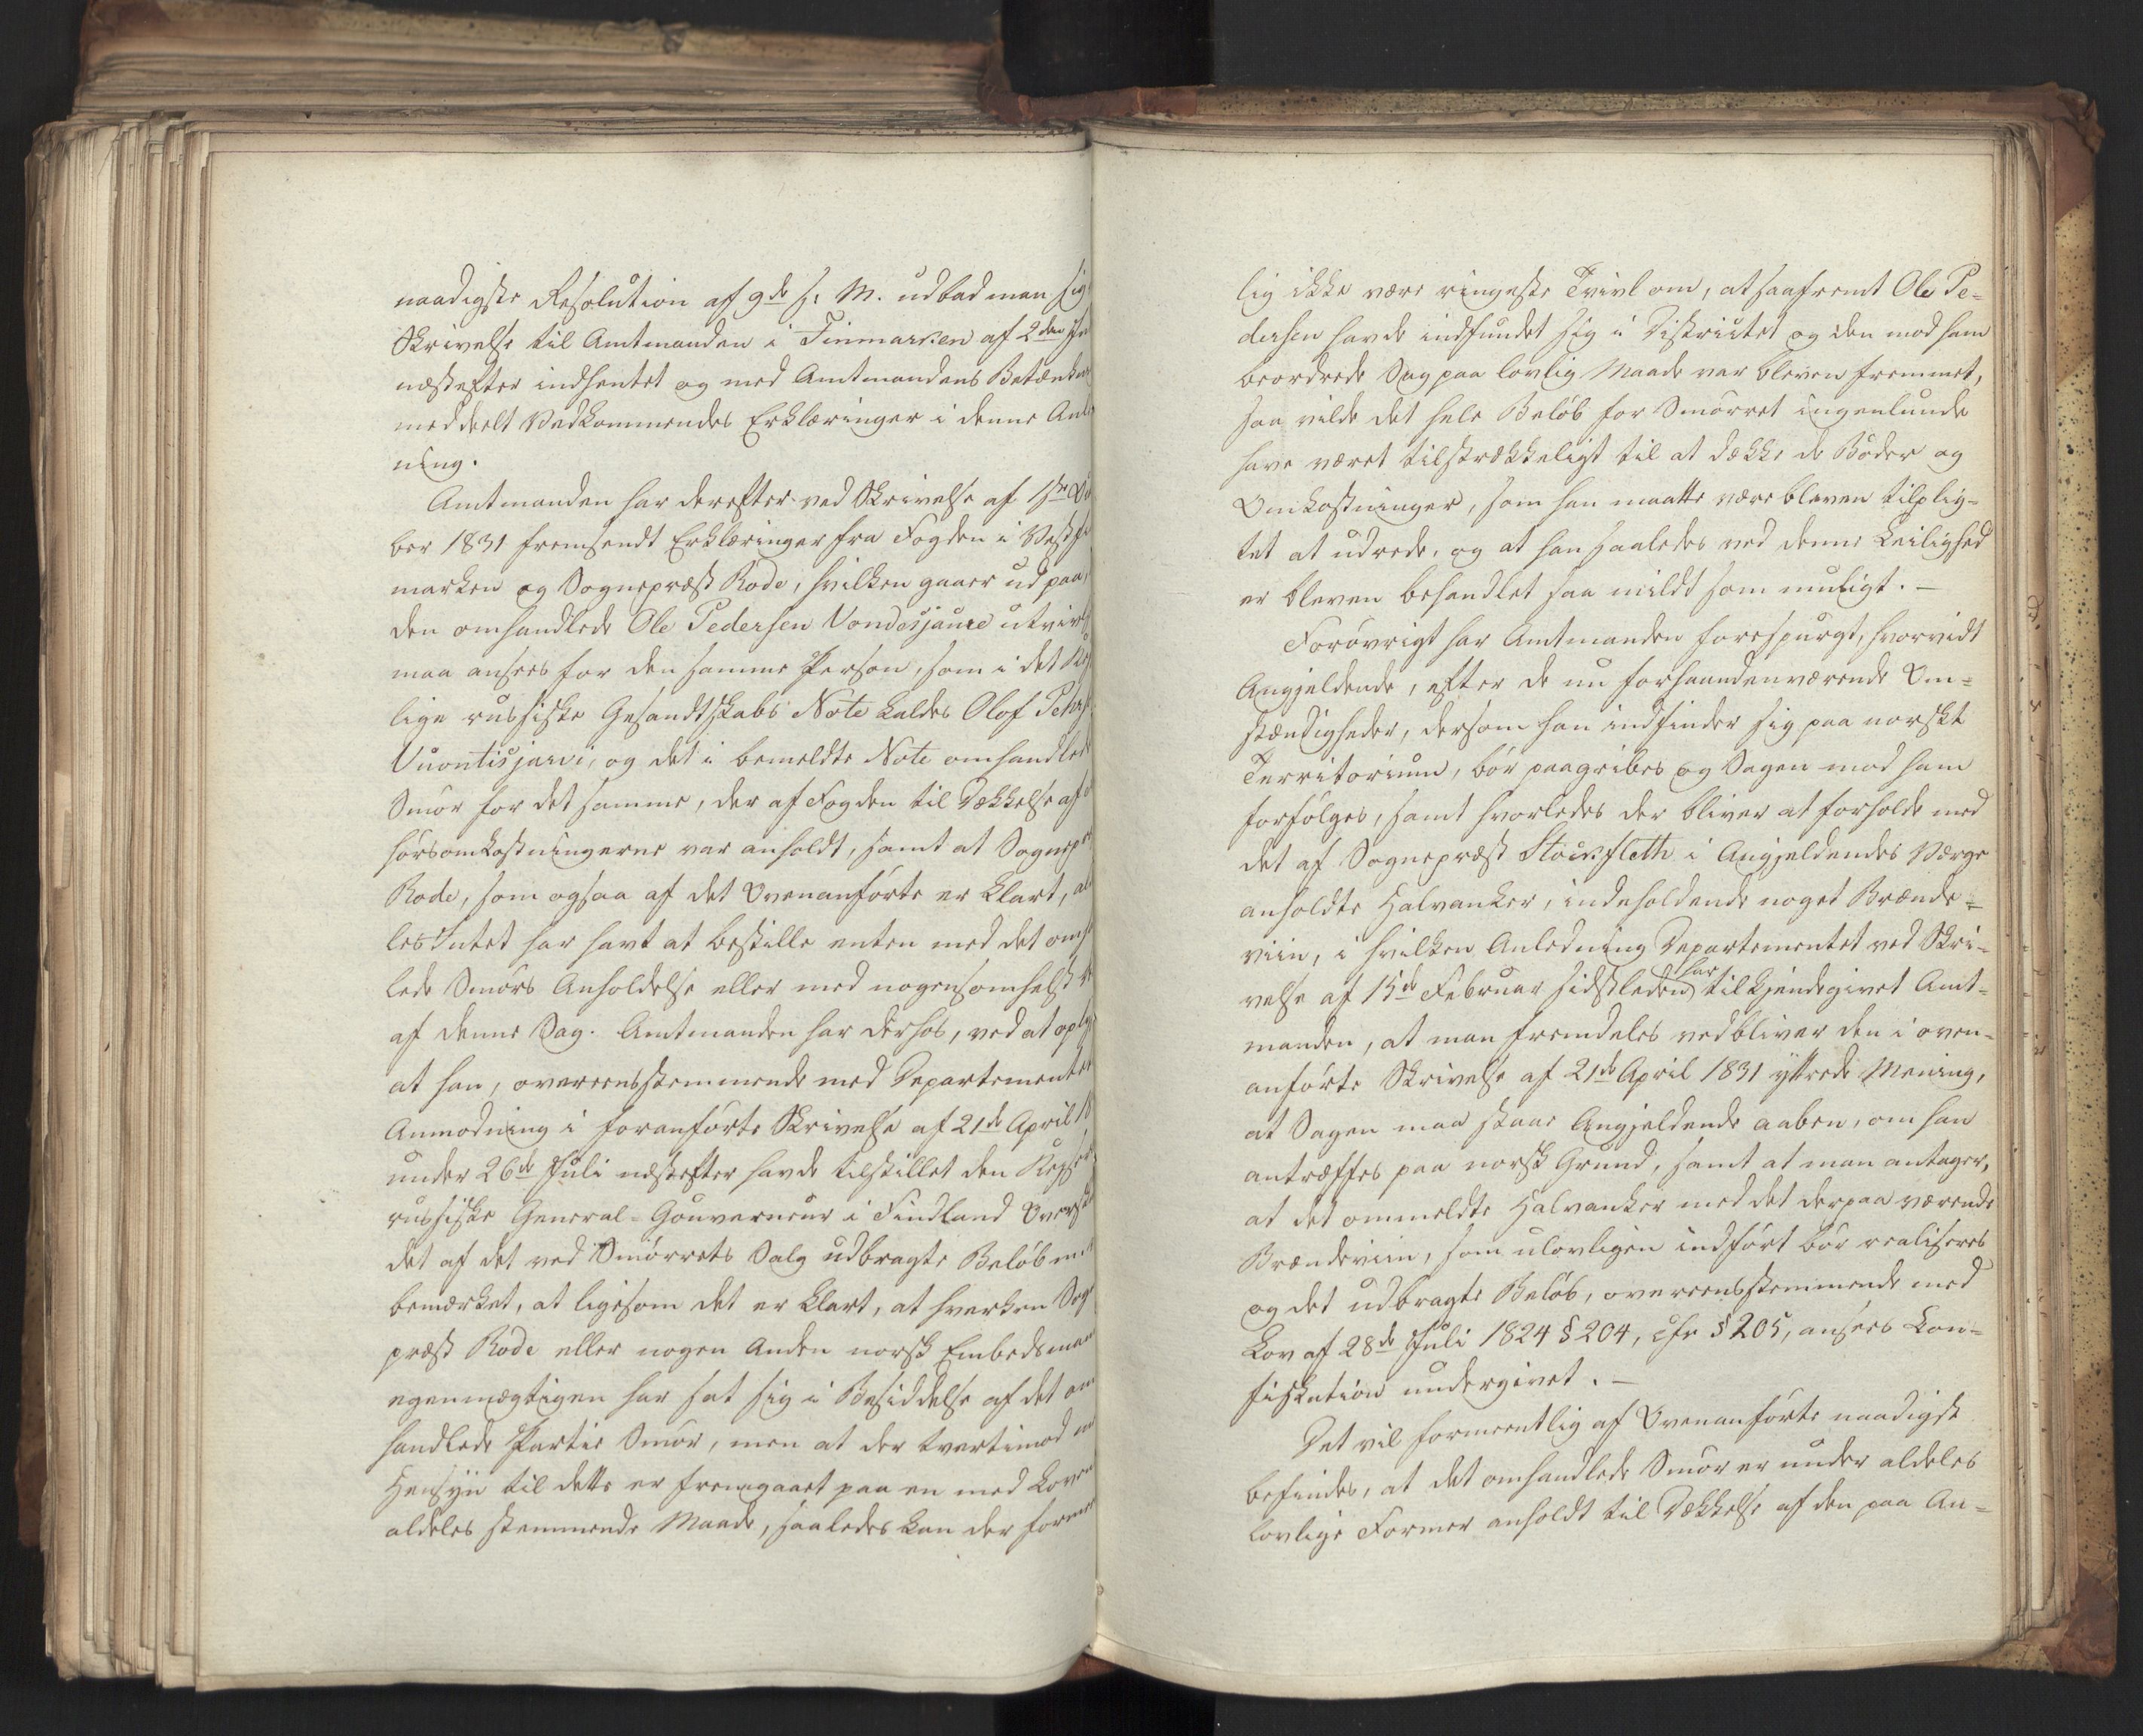 naadigste Resolution af 9de s. M. udbad man sig
Skrivelse til Amtmanden i Finmarken af 2den
næstefter indhentet og med Amtmandens Betænkn
meddeelt Vedkommendes Erklæringer i denne Anled
ning.
Amtmanden har derefter ved Skrivelse af 1ste
ber 1831 fremsendt Erklæringer fra Fogden i Vestfi
marken og Sognepræst Rode, hvilken gaaer ud paa,
den omhandlede Ole Pedersen Vondosjaure utvivl
maa ansees for den samme Person, som i det Keyser
lige russiske Gesandtskabs Note kaldes Olof Pehrs
Vuontisjarvi, og det i bemeldte Note omhandlede
Smør for det samme, der af Fogden til Dækkelse af
hørsomkostningerne var anholdt, samt at Sognepr
Rode, som ogsaa af det Ovenanførte er klart, al
les Intet har havt at bestille enten med det omh
lede Smørs Anholdelse eller med nogensomhelst
af denne Sag. Amtmanden har derhos, ved at oply
at han, overeensstemmende med Departementets
Anmodning i foranførte Skrivelse af 21de April 18
under 26de Juli næstefter havde tilstillet den Keyser
russiske General-Gouverneur i Findland Oversk
det af det ved Smørrets Salg udbragte Beløb
bemærket, at ligesom det er klart, at hverken Sogn
præst Rode eller nogen Anden norsk Embedsman
egenmægtigen har sat sig i Besiddelse af det om
handlede Partie Smør, men at der tvertimod
Hensyn til dette er fremgaaet paa en med Loven
aldeles stemmende Maade, saaledes kan der formeent
lig ikke være ringeste Tvivl om, at saafremt Ole Pe=
dersen havde indfundet sig i Districtet og den mod ham
beordrede Sag paa lovlig Maade var bleven fremmet,
saa vilde det hele Beløb for Smørret ingenlunde
have været tilstrækkeligt til at dække de Bøder og
Omkostninger, som han maatte være bleven tilplig=
tet at udrede, og at han saaledes ved denne Leilighed
er bleven behandlet saa mildt som muligt. —
Forøvrigt har Amtmanden forespurgt, hvorvidt
Angjeldende, efter de nu forhaandenværende Om=
stændigheder, dersom han indfinder sig paa norskt
Territorium, bør paagribes og Sagen mod ham
forfølges, samt hvorledes der bliver at forholde med
det af Sognepræst Stockfleth i Angjeldendes Værge
anholdte Halvanker, indeholdende noget Brænde=
viin, i hvilken Anledning Departementet ved Skri=
velse af 15de Februar sidstleden har tilkjendegivet Amt=
manden, at man fremdeles vedbliver den i oven=
anførte Skrivelse af 21de April 1831 yttrede Mening,
at Sagen maa staae Angjeldende aaben, om han
antræffes paa norsk Grund, samt at man antager,
at det ommeldte Halvanker med det derpaa værende
Brændeviin, som ulovligen indført bør realiseres
og det udbragte Beløb, overeensstemmende med
Lov af 28de Juli 1824 § 204, cfr § 205, ansees Con=
fiskation undergivet. —
Det vil formeentlig af Ovenanførte naadigst
befindes, at det omhandlede Smør er under aldeles
lovlige Former anholdt til Dækkelse af den paa An=